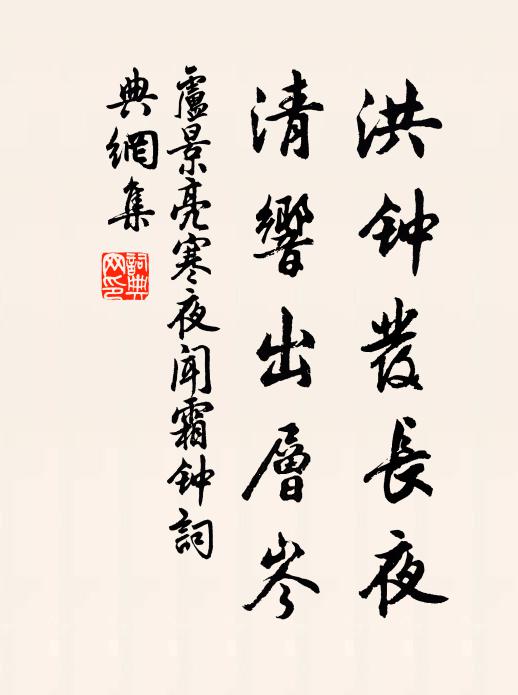 洪钟發長夜
清響出層岑
盧景亮寒夜聞霜钟詞
典網集
詞典網印